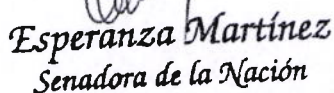 Esperanza Martínez
Senadora de la Nación